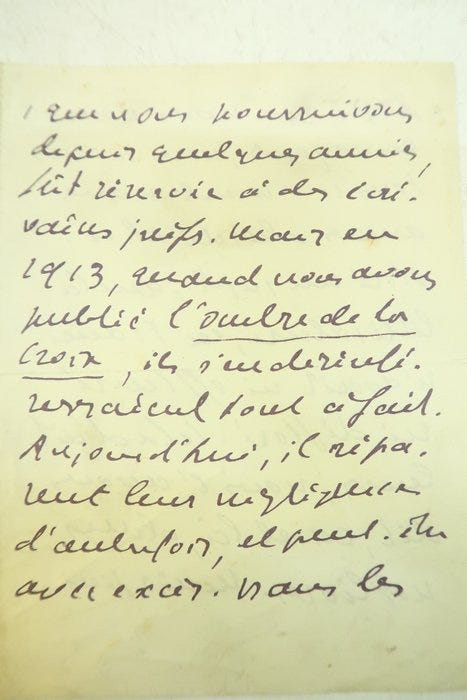 que nous poursuivons
depuis quelques années,
fût réservée à des écri-
vains juifs. Mais en
1913, quand nous avons
publié l'ombre de la
Croix, ils s'en désinté-
ressaient tout à fait.
Aujourd'hui, ils répa-
rent leur négligence
d'autrefois, et peut-être
avec excès. Dans les